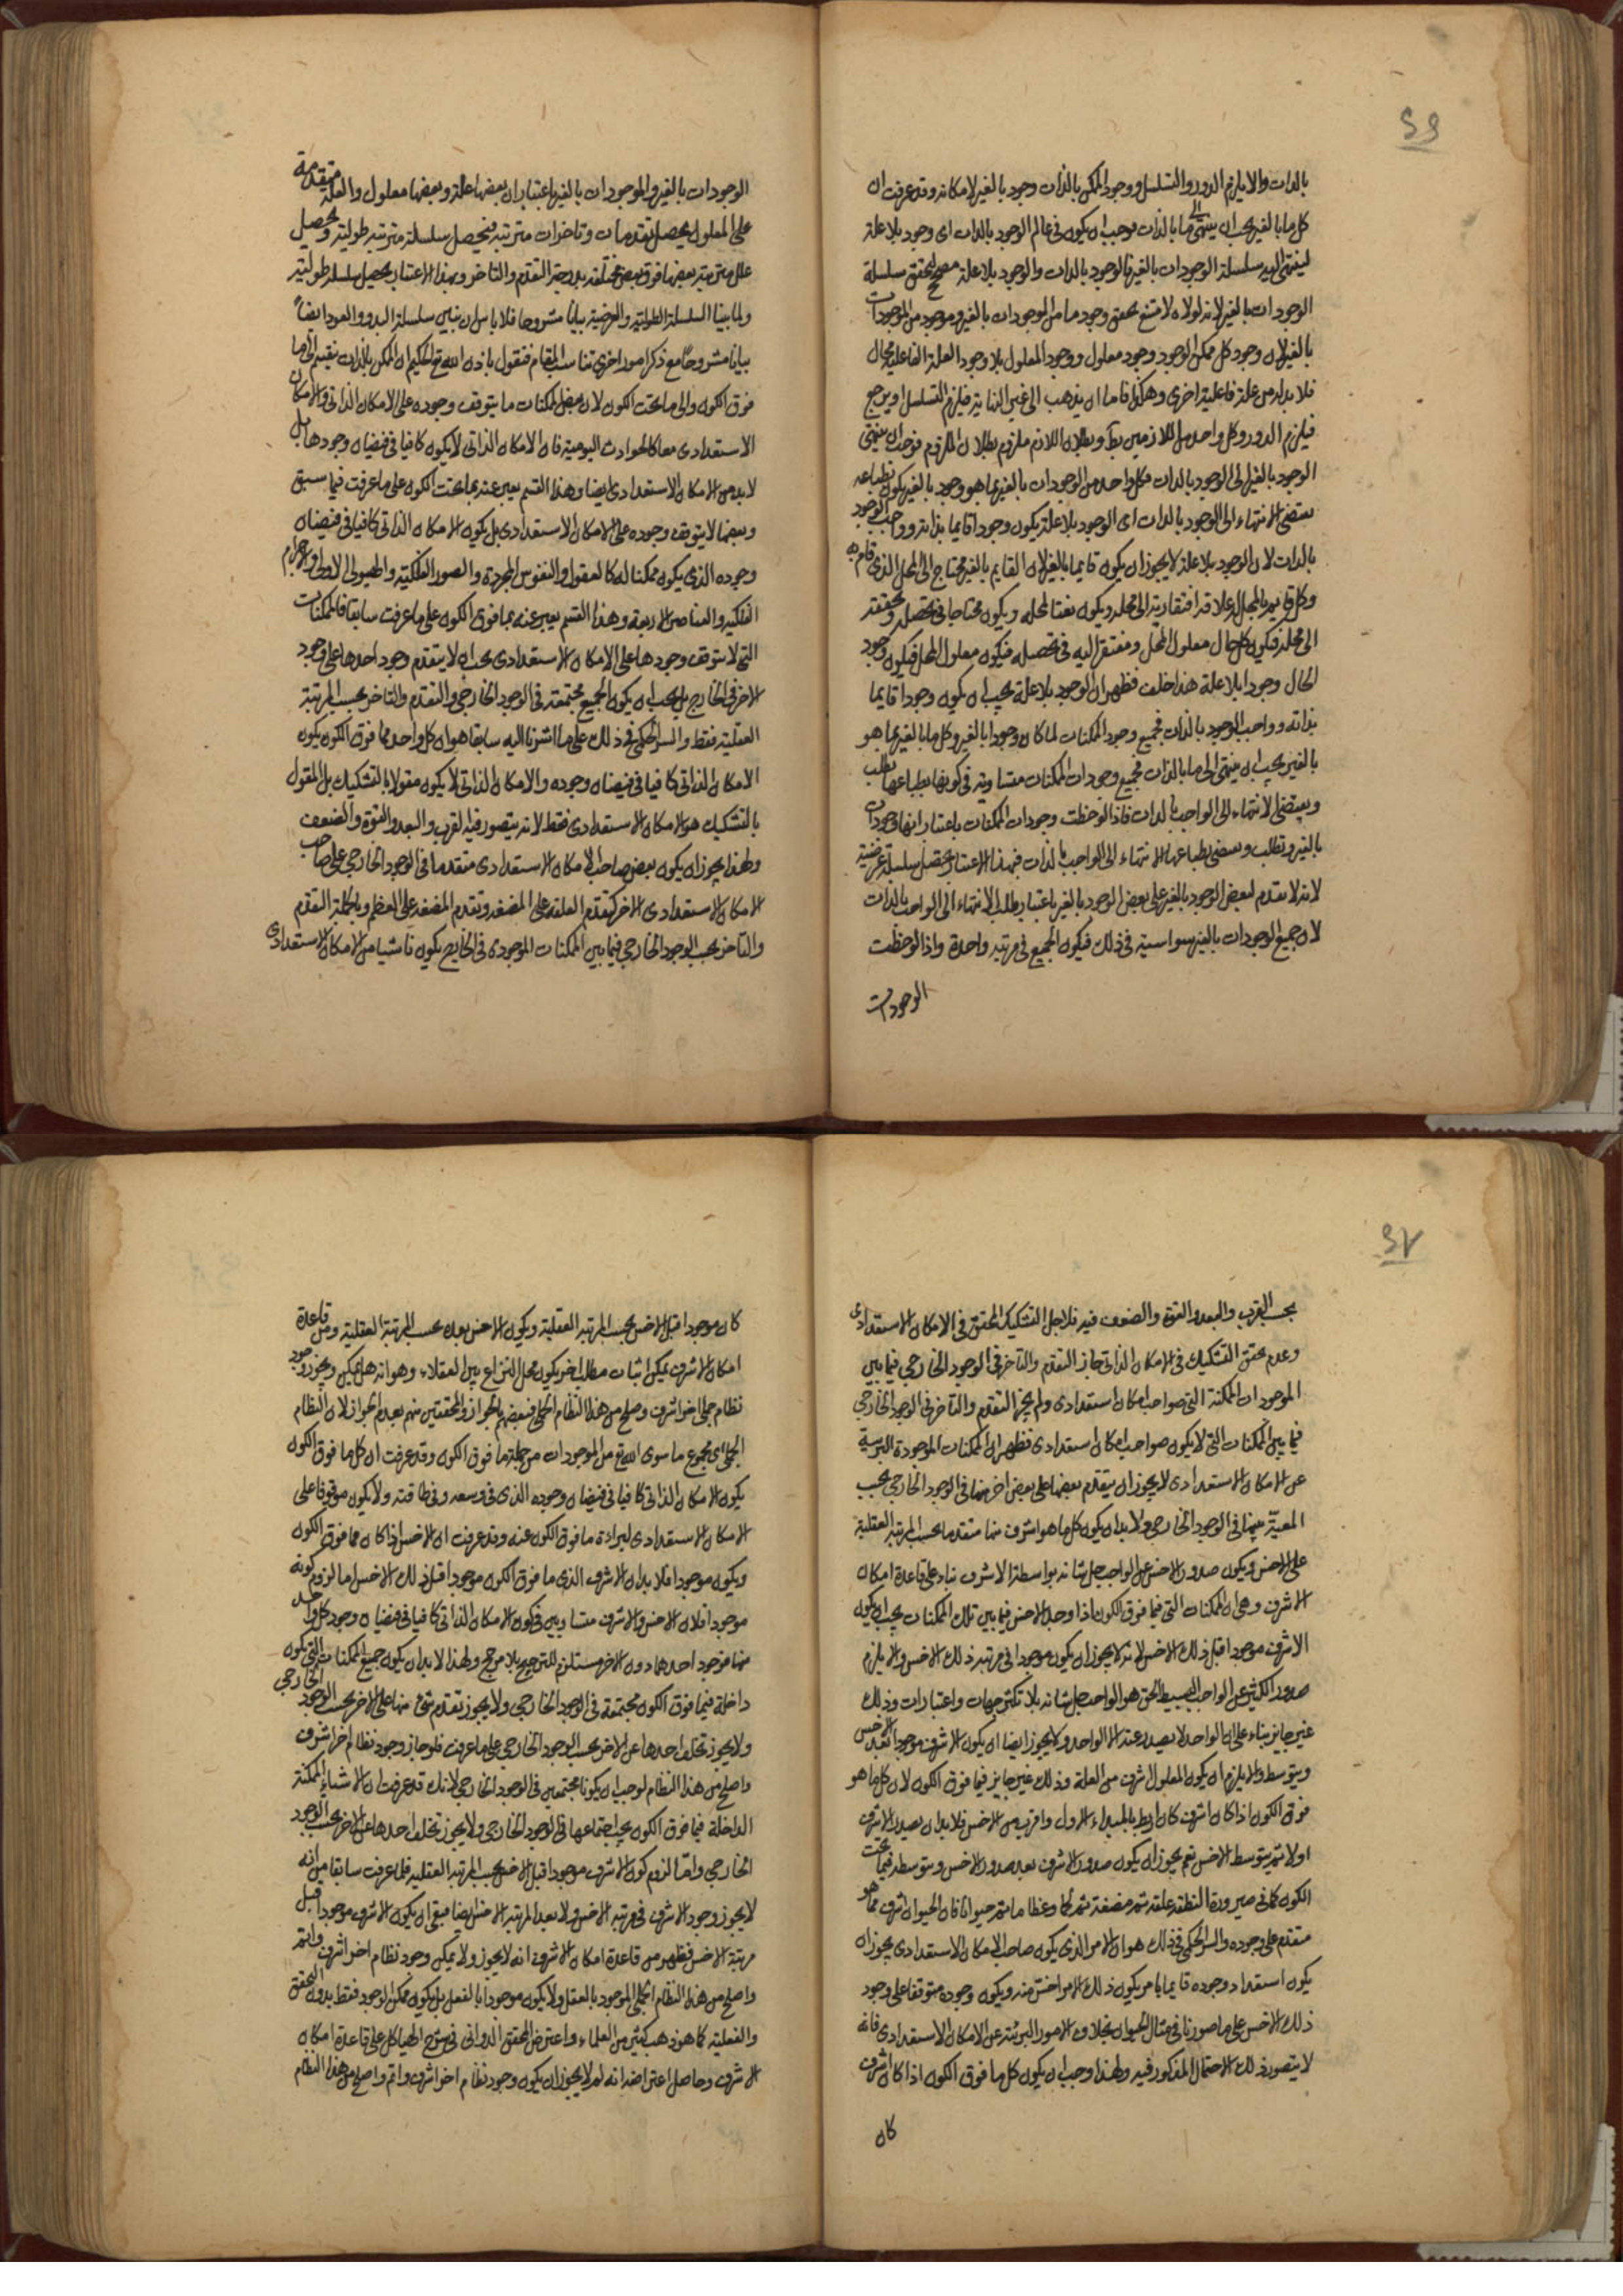 ٤٦
بالذات والا يلزم الدور والتسلسل ووجود الممكن بالذات وجود بالغير لامكانه وقد عرفت ان
كل ما بالغير يجب ان ينتهى الى ما بالذات فوجب ان يكون فى عالم الوجود بالذات اى وجود بلا علة
لينتهى اليه سلسلة الوجودات بالغير فالوجود بالذات والوجود بلا علة مصحح لتحقق سلسلة
الوجودات بالغير لانه لولاه لامتنع تحقق وجود ما من الوجودات بالغير وموجود من الموجودات
بالغير لان وجود كل ممكن الوجود وجود معلول ووجود المعلول بلا وجود العلة الفاعلية محال
فلا بد له من علة فاعلية اخرى وهكذا فاما ان يذهب الى غير النهاية فيلزم التسلسل او يرجع
فيلزم الدور وكل واحد من اللازمين بط وبطلان اللازم ملزوم بطلان الملزوم فوجب ان ينتهى
الوجود بالغير الى الوجود بالذات فكل واحد من الوجودات بالغير بما هو وجود بالغير يكون بطباعه
يقتضى الانتهاء الى الوجود بالذات اى الوجود بلا علة يكون وجودا قايما بذاته وواجب الوجود
بالذات لان الوجود بلا علة لا يجوز ان يكون قايما بالغير لان القايم بالغير محتاج الى المحل الذى قام به
وكل قايم بالمحل له علاقة افتقارية الى محله ويكون نعتا لمحله ويكون محتاجا فى تحصله وتحققه
الى محله فيكون كل حال معلول المحل ومفتقرا اليه فى تحصله فيكون معلول المحل فيكون وجود
الحال وجودا بلا علة هذا خلف فظهر ان الوجود بلا علة يجب ان يكون وجودا قايما
بذاته وواجب الوجود بالذات فجميع وجود الممكنات لما كان وجودا بالغير وكل ما بالغير بما هو
بالغير يجب ان ينتهى الى ما بالذات فجميع وجودات الممكنات متساوية فى كونها بطباعها تطلب
ويقتضى الانتهاء الى الواجب بالذات فاذا لوحظت وجودات الممكنات باعتبار انها وجودات
بالغير وتطلب ويقتضى بطباعها الانتهاء الى الواجب بالذات فبهذا الاعتبار يحصل سلسلة عرضية
لانه لا تقدم لبعض الوجود بالغير على بعض الوجود بالغير باعتبار طلب الانتهاء الى الواجب بالذات
لان جميع الوجودات بالغير سواسية فى ذلك فيكون الجميع فى مرتبة واحدة واذا لوحظت
الوجودات
الوجودات بالغير والموجودات بالغير باعتبار ان بعضها علة وبعضها معلول والعلة متقدمة
على المعلول يحصل تقدمات وتاخرات مترتبة فيحصل سلسلة مترتبة طولية ويحصل
علل مترتبة بعضها فوق بعض مختلفة بدرجة التقدم والتاخر وبهذا الاعتبار يحصل سلسلة طولية
ولما بينا السلسلة الطولية والعرضية بيانا مشروحا فلا باس ان نبين سلسلة البدو والعود ايضا
بيانا مشروحا مع ذكر امور اخرى تناسب المقام فنقول باذن الله تع الحكيم ان الممكن بالذات ينقسم الى ما
فوق الكون والى ما تحت الكون لان بعض الممكنات ما يتوقف وجوده على الامكان الذاتى والامكان
الاستعدادى معا كالحوادث اليومية فان الامكان الذاتى لا يكون كافيا فى فيضان وجودها بل
لا بد من الامكان الاستعدادى ايضا وهذا القسم يعبر عنه بما تحت الكون على ما عرفت فيما سبق
وبعضها لا يتوقف وجوده على الامكان الاستعدادى بل يكون الامكان الذاتى كافيا فى فيضان
وجوده الذى يكون ممكنا له كالعقول والنفوس المجردة والصور الفلكية والهيولى الاولى والاجرام
الفلكية والعناصر الاربعة وهذا القسم يعبر عنه بما فوق الكون على ما عرفت سابقا فالممكنات
التى لا يتوقف وجودها على الامكان الاستعدادى يجب ان لا يتقدم وجود احدها على وجود
الاخر فى الخارج بل يجب ان يكون الجميع مجتمعة فى الوجود الخارجى والتقدم والتاخر بحسب المرتبة
العقلية فقط والسر الحكمى فى ذلك على ما اشرنا اليه سابقا هو ان كل واحد مما فوق الكون يكون
الامكان الذاتى كافيا فى فيضان وجوده والامكان الذاتى لا يكون مقولا بالتشكيك بل المقول
بالتشكيك هو الامكان الاستعدادى فقط لانه يتصور فيه القرب والبعد والقوة والضعف
ولهذا يجوز ان يكون بعض صاحب الامكان الاستعدادى متقدما فى الوجود الخارجى على صاحب
الامكان الاستعدادى الاخر كتقدم العلقة على المضغة وتقدم المضغة على العظم وبالجملة التقدم
والتاخر بحسب الوجود الخارجى فيما بين الممكنات الموجودة فى الخارج يكون ناشيا من الامكان الاستعدادى
٤٧
بحسب القرب والبعد والقوة والضعف فيه فلاجل التشكيك المحقق فى الامكان الاستعدادى
وعدم تحقق التشكيك فى الامكان الذاتى جاز التقدم والتاخر فى الوجود الخارجى فيما بين
الموجودات الممكنة التى صواحب امكان استعدادى ولم يجز التقدم والتاخر فى الوجود الخارجى
فيما بين الممكنات التى لا يكون صواحب امكان استعدادى فظهر ان الممكنات الموجودة البريئة
عن الامكان الاستعدادى لا يجوز ان يتقدم بعضها على بعض اخر منها فى الوجود الخارجى يجب
المعية بينها فى الوجود الخارجى ولا بد ان يكون كل ما هو اشرف منها متقدما بحسب المرتبة العقلية
على الاخس ويكون صدور الاخس عن الواجب جل شانه بواسطة الاشرف بناء على قاعدة امكان
الاشرف وهى ان الممكنات التى فيما فوق الكون اذا وجد الاخس فيما بين تلك الممكنات يجب ان يكون
الاشرف موجودا قبل ذلك الاخس لانه لا يجوز ان يكون موجودا فى مرتبة ذلك الاخس والا يلزم
صدور الكثير عن الواجب البسيط الحق هو الواحد جل شانه بلا تكثر جهات واعتبارات وذلك
غير جايز بناء على ان الواحد لا يصدر عنه الا الواحد ولا يجوز ايضا ان يكون الاشرف موجودا بعد الاخس
وبتوسطه والا يلزم ان يكون المعلول اشرف من العلة وذلك غير جايز فيما فوق الكون لان كل ما هو
فوق الكون اذا كان اشرف كان اربط بالمبداء الاول واقرب من الاخس فلا بد ان يصدر الاشرف
اولا ثم بتوسطه الاخس نعم يجوز ان يكون صدور الاشرف بعد صدور الاخس وبتوسطه فيما تحت
الكون كما فى صيرورة النطفة علقة ثم مضغة ثم لحما وعظاما ثم حيوانا فان الحيوان اشرف مما هو
متقدم على وجوده والسر الحكمى فى ذلك هو ان الامر الذى يكون صاحب الامكان الاستعدادى يجوز ان
يكون استعداد وجوده قايما بامر يكون ذلك الامر اخس منه ويكون وجوده متوقفا على وجود
ذلك الاخس على ما صورنا فى مثال الحيوان بخلاف الامور البريئة عن الامكان الاستعدادى فانه
لا يتصور ذلك الاحتمال المذكور فيه ولهذا وجب ان يكون كل ما فوق الكون اذا كان اشرف
كان
كان موجودا قبل الاخس بحسب المرتبة العقلية ويكون الاخس بعده بحسب المرتبة العقلية ومن قاعدة
امكان الاشرف يمكن اثبات مطلب اخر يكون محل النزاع بين العقلاء وهو انه هل يمكن ويجوز وجود
نظام جملى اخر اشرف واصلح من هذا النظام الجملى فبعضهم بالجواز والمحققين منهم بعدم الجواز لان النظام
الجملى اى مجموع ما سوى الله تع من الموجودات من جملتها ما فوق الكون وقد عرفت ان كل ما فوق الكون
يكون الامكان الذاتى كافيا فى فيضان وجوده الذى فى وسعه وفى طاقته ولا يكون موقوفا على
الامكان الاستعدادى لبراءة ما فوق الكون عنه وقد عرفت ان الاخس اذا كان مما فوق الكون
ويكون موجودا فلا بد ان الاشرف الذى ما فوق الكون موجودا قبل ذلك الاخس اما لزوم كونه
موجودا فلان الاخس والاشرف متساويين فى كون الامكان الذاتى كافيا فى فيضان وجود كل واحد
منهما فوجود احدهما دون الاخر مستلزم للترجيح بلا مرجح ولهذا لا بد ان يكون جميع الممكنات التى يكون
داخلة فيما فوق الكون مجتمعة فى الوجود الخارجى ولا يجوز تقدم شئ منها على الاخر بحسب الوجود الخارجى
ولا يجوز تخلف احدها عن الاخر بحسب الوجود الخارجى على ما عرفت فلو جاز وجود نظام اخر اشرف
واصلح من هذا النظام لوجب ان يكونا مجتمعين فى الوجود الخارجى لانك قد عرفت ان الاشياء الممكنة
الداخلة فيما فوق الكون يجب اجتماعها فى الوجود الخارجى ولا يجوز تخلف احدها عن الاخر بحسب الوجود
الخارجى واما لزوم كون الاشرف موجودا قبل الاخس بحسب المرتبة العقلية فلما عرفت سابقا من انه
لا يجوز وجود الاشرف فى مرتبة الاخس ولا بعد المرتبة الاخس ايضا فبقى ان يكون الاشرف موجودا قبل
مرتبة الاخس فظهر من قاعدة امكان الاشرف انه لا يجوز ولا يمكن وجود نظام اخر اشرف واتم
واصلح من هذا النظام الجملى الموجود بالعقل ولا يكون موجودا بالفعل بل يكون ممكن الوجود فقط بدون التحقق
والفعلية كما هو ذهب كثير من العلماء واعترض المحقق الدوانى فى شرح الهياكل على قاعدة امكان
الاشرف وحاصل اعتراضه انه لم لا يجوز ان يكون وجود نظام اخر اشرف واتم واصلح من هذا النظام